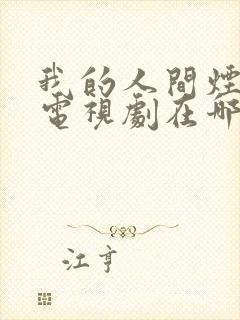 我的人間煙
電視劇在哪
江亨